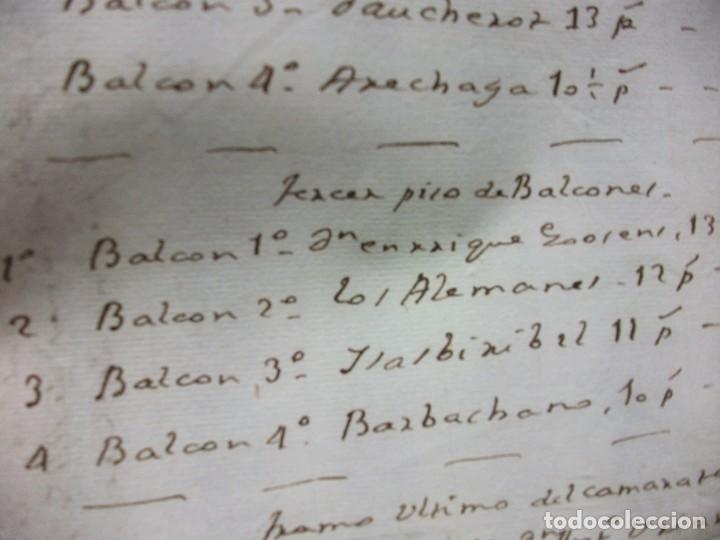 Balcon 3º Gaucheror 13 p̃ -
Balcon 4º. Arechaga 10 ½ p̃ - -
tercer piso de Balcones.
1º Balcon 1º Dn enrrique Goosens, 13
2 Balcon 2º los Alemanes - 12 p̃ -
3. Balcon 3º Isasbiribel 11 p̃ -
4 Balcon 4º. Barbachano, 10 p̃ -
tramo ultimo del camara
todocoleccion
todocoleccion.net